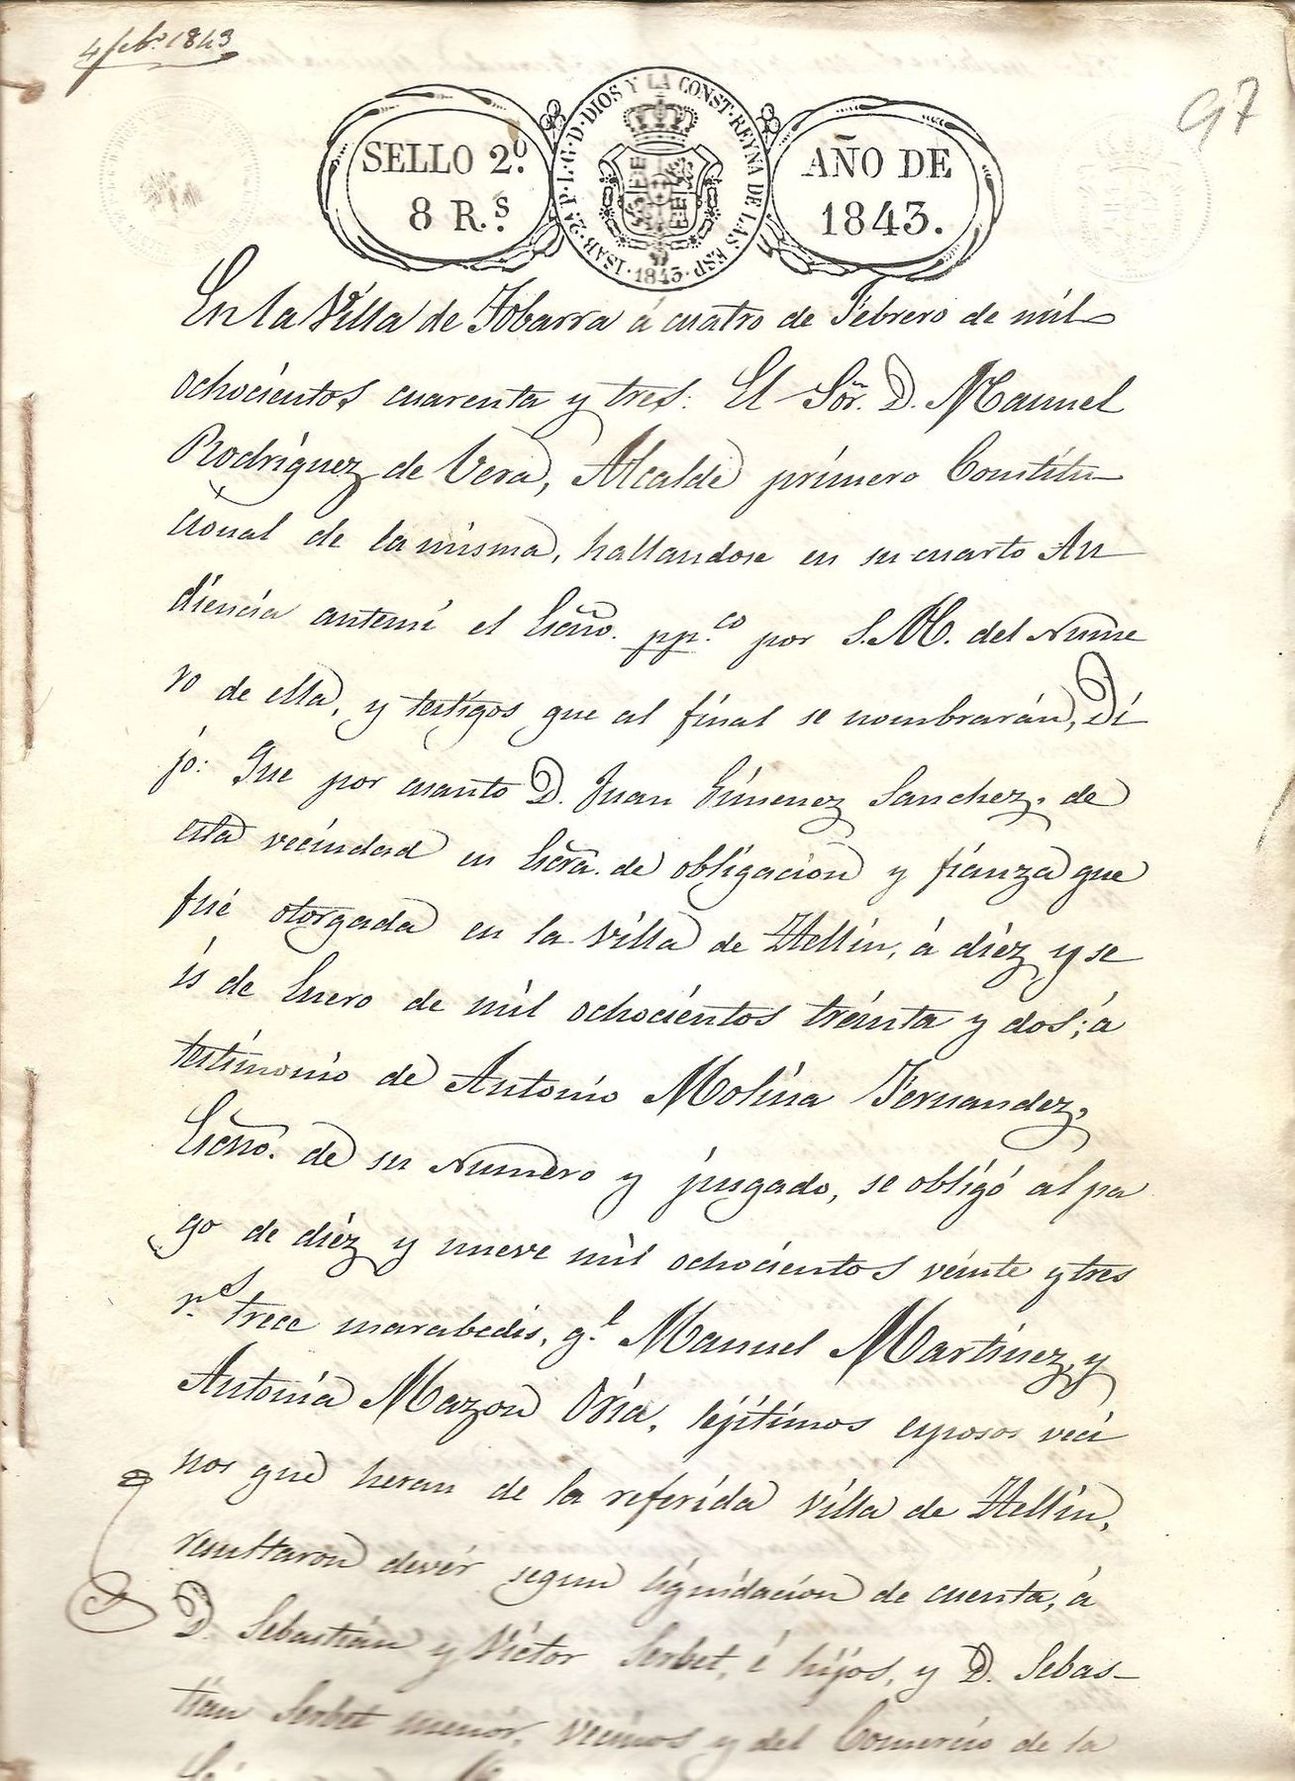 4 feb.o 1843
97
SELLO 2.º
8 R.s
ISAB·2ª P·L·G·D·DIOS Y LA CONST·REYNA DE LAS ESP·
·1843·
AÑO DE
1843.
En la Villa de Tobarra á cuatro de Febrero de mil
ochocientos cuarenta y tres: El Sor. D. Manuel
Rodriguez de Vera, Alcalde primero Constitu-
cional de la misma, hallandose en su cuarto Au
diencia antemi el Escno. pp.co por S.M. del Nume
ro de ella, y testigos que al final se nombrarán, Di
jo: Que por cuanto D. Juan Gimenez Sanchez, de
esta vecindad en Escra. de obligacion y fianza que
fué otorgada en la Villa de Hellin, á diez y se
is de Enero de mil ochocientos treinta y dos; á
testimonio de Antonio Molina Fernandez,
Escno. de su Numero y juzgado, se obligó al pa
go de diez y nueve mil ochocientos veinte y tres
r.s trece marabedis, q.e Manuel Martinez, y
Antonia Mazon Oria, lejitimos esposos veci
nos que heran de la referida Villa de Hellin,
resultaron devér segun liquidacion de cuenta, á
D. Sebastian y Victor Serbet, é hijos, y D. Sebas-
tian Serbet menór, Vecinos y del Comercio de la